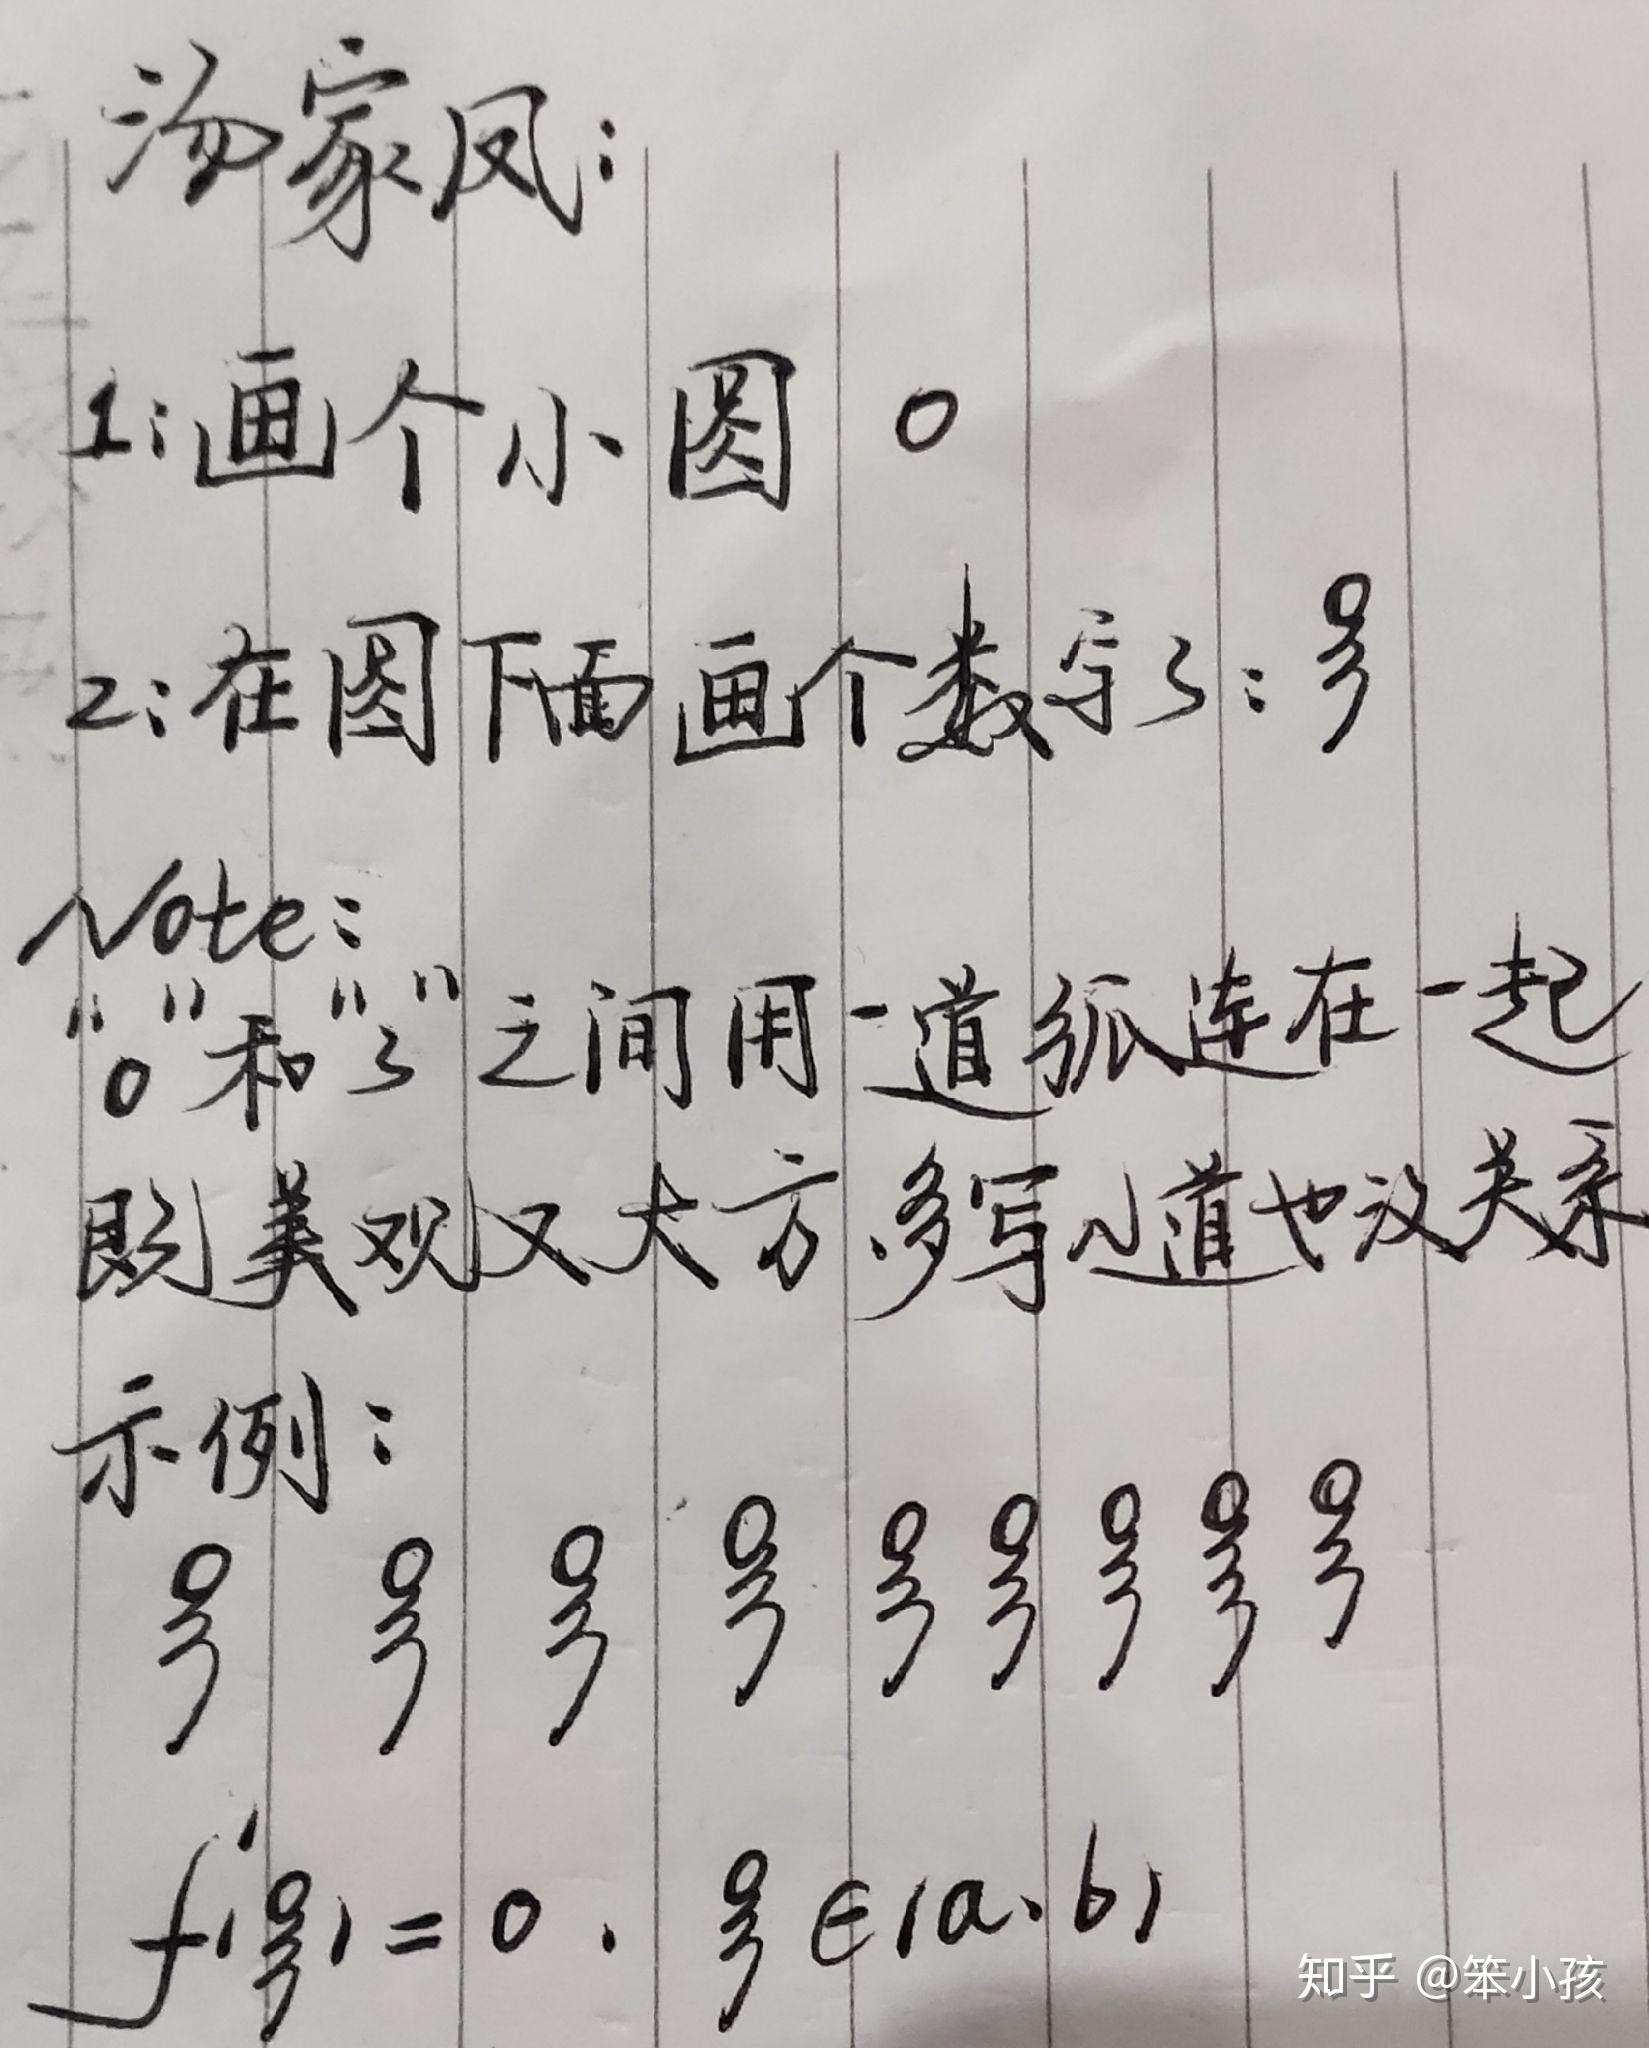 汤家凤:
1:画个小圆 0
2:在圆下面画个数字3:ξ
Note:
"0"和"3"之间用一道弧连在一起
既美观又大方.多写几道也没关系
示例:
ξ ξ ξ ξ ξ ξ ξ ξ ξ
f'(ξ)=0. ξ∈(a.b)
知乎 @笨小孩